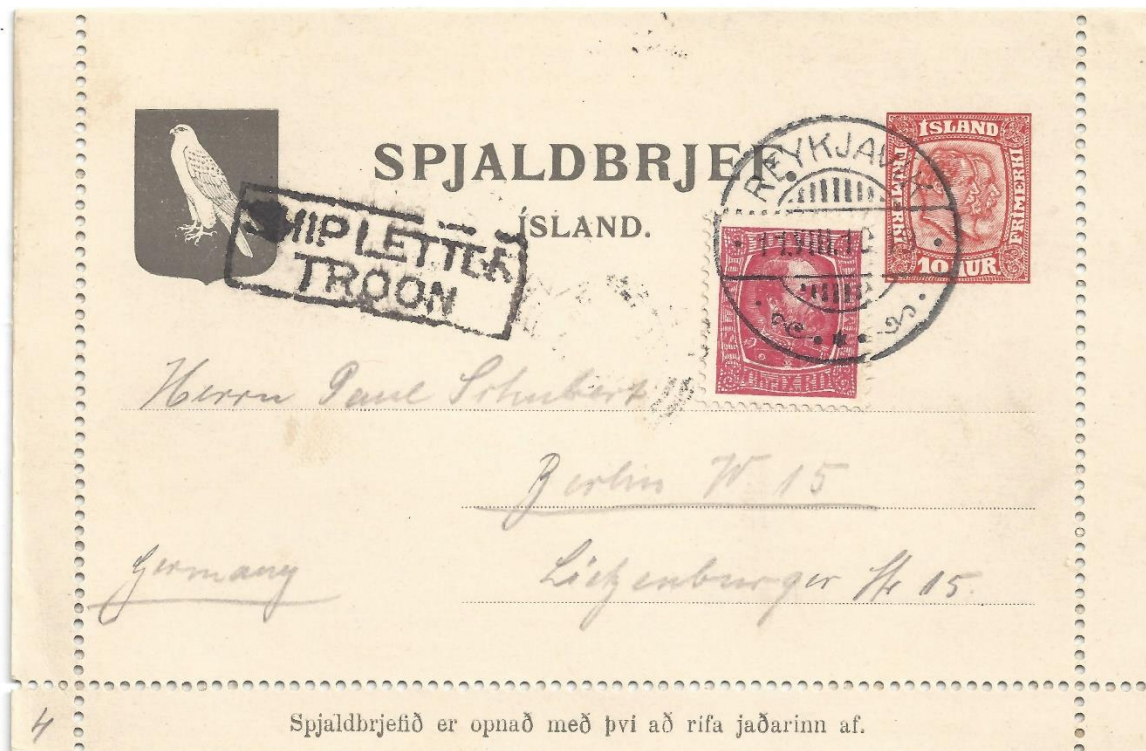 SPJALDBRJEF
ÍSLAND.
SHIP LETTER
TROON
REYKJAVIK
ÍSLAND
FRÍMERKI
FRÍMERKI
10 AUR
Herrn Paul Schubert
Berlin W 15
Germany
Lietzenburger Str 15.
4
Spjaldbrjefið er opnað með því að rífa jaðarinn af.